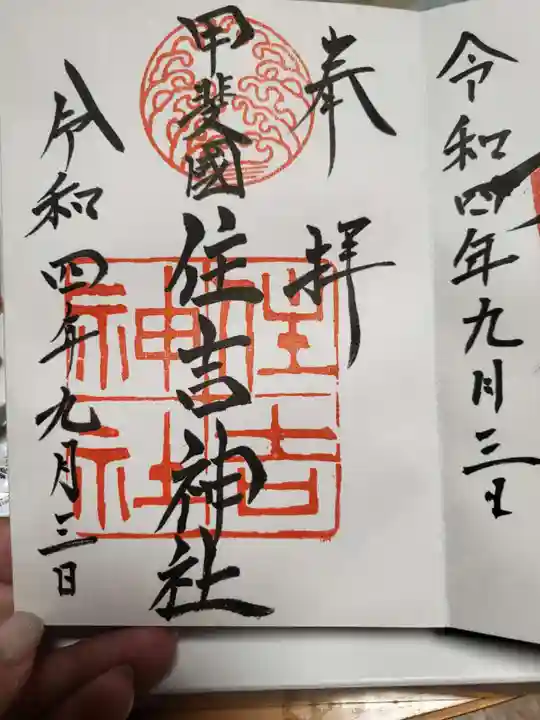 令和四年九月三日
奉拝
甲斐國
住吉神社
住吉
神社
令和四年九月三日